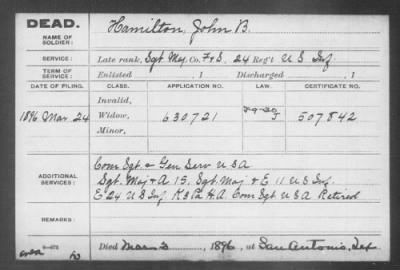 DEAD.
NAME OF SOLDIER:
Hamilton, John B.
SERVICE:
Late rank, Sgt Maj Co. F&S, 24 Reg't U S Inf
TERM OF SERVICE:
Enlisted , 1 Discharged , 1
DATE OF FILING. CLASS. APPLICATION NO. LAW. CERTIFICATE NO.
Invalid,
1896 Mar 24 Widow, 630721 507842
Minor,
ADDITIONAL SERVICES:
Com Sgt & Gen Serv U S A
Sgt. Maj & A 15, Sgt. Maj & E 11 U S Inf.
E 24 U S Inf Pa H A Com Sgt U S A Retired
REMARKS:
Died Mar 3, 1896, at San Antonio, Tex